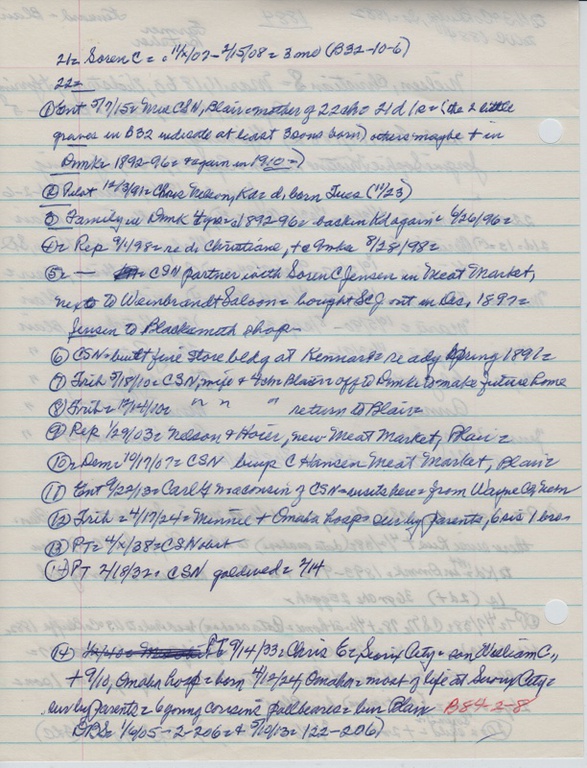 21= Soren C = 11/X/07 - 2/15/08 = 3 mo (B32-10-6)
22=
① Ent 5/7/15 = Mrs CSN, Blair = mother of 22 cho 21 d (the 2 little
graves in B32 indicate at least 3 sons born) others maybe + in
Dmk = 1892-96 = + again in 1910 =)
② Pilot 12/3/91 = Chris Nelson, Kd = d, born Tues (11/23)
③ Family in Dmk 4 yrs = 1892-96 = back in Kd again = 6/26/96 =
4= Rep 9/1/98 = re d. Christiane, + a 9 mba 8/28/98 =
5= - CSN partner with Soren C Jensen in Meat Market,
next to Weinbrandt Saloon = bought SCJ out in Oct, 1897 =
Jensen to Blacksmith shop
⑥ CSN = built fine store bldg at Kennard = ready Spring 1891 =
⑦ Trib 5/18/10 = CSN, wife + off to Dmk to make future home
⑧ Trib = 12/14/10 = " " " return to Blair =
⑨ Rep 1/29/03 = Nelson & Hoier, new Meat Market, Blair =
10= Dem 10/17/07 = CSN buys C Hansen Meat Market, Blair =
⑪ Ent 9/22/13 = Carl of CSN = visits here = from Wayne Co, Nem
⑫ Trib = 4/17/24 = Minnie + Omaha hosp = sur by parents, 6 sis 1 bro =
⑬ PT = 4/X/38 = CSN hurt
⑭ PT 2/18/32 = CSN gold wed = 2/14
⑭ PT 9/14/33 = Chris E, Sioux City = son William C,
+ 9/10, Omaha hosp = born 4/12/24 Omaha = most of life at Sioux City =
sur by parents = 6 young cousins pallbearers = bur Blair B84-2-8
1/6/05 - 2-206 = + 5/19/13 = 122-206)